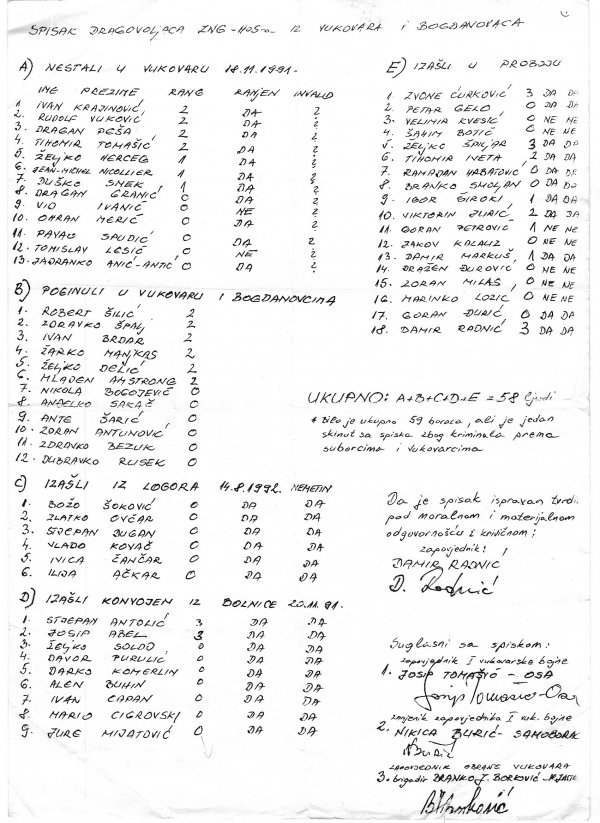 SPISAK DRAGOVOLJACA ZNG-HOS-a IZ VUKOVARA i BOGDANOVACA
A) NESTALI U VUKOVARU 18.11.1991.
IME PREZIME RANG RANJEN INVALID
1. IVAN KRAJINOVIĆ 2 DA ?
2. RUDOLF VUKOVIĆ 2 DA ?
3. DRAGAN PEŠA 2 DA ?
4. TIHOMIR TOMAŠIĆ 2 DA ?
5. ŽELJKO HERCEG 1 DA ?
6. JEAN-MICHEL NICOLLIER 1 DA ?
7. DUŠKO SMEK 1 DA ?
8. DRAGAN GRANIĆ 0 DA ?
9. VID IVANIĆ 0 NE ?
10. OMRAN MERIĆ 0 DA ?
11. PAVAO SPUDIĆ 0 DA ?
12. TOMISLAV LESIĆ 0 NE ?
13. JADRANKO ANIĆ-ANTIĆ 0 DA ?
B) POGINULI U VUKOVARU I BOGDANOVCIMA
1. ROBERT ŠILIĆ 2
2. ZDRAVKO ŠPALJ 2
3. IVAN BRDAR 2
4. ŽARKO MANJKAS 2
5. ŽELJKO DELIĆ 2
6. MLADEN AMSTRONG 2
7. NIKOLA BOGOJEVIĆ 0
8. ANĐELKO SAKAČ 0
9. ANTE ŠARIĆ 0
10. ZORAN ANTUNOVIĆ 0
11. ZDRAVKO BEZUK 0
12. DUBRAVKO RUSEK 0
C) IZAŠLI IZ LOGORA 14.8.1992. NEMETIN
1. BOŽO ŠOKOVIĆ 0 DA DA
2. ZLATKO OVČAR 0 DA DA
3. STJEPAN DUGAN 0 DA DA
4. VLADO KOVAČ 0 DA DA
5. IVICA ČANČAR 0 DA DA
6. ILIJA AČKAR 0 DA DA
D) IZAŠLI KONVOJEM IZ BOLNICE 20.11.91.
1. STJEPAN ANTOLIĆ 3 DA DA
2. JOSIP ABEL 3 DA DA
3. ŽELJKO SOLDO 0 DA DA
4. DAVOR PURULIĆ 0 DA DA
5. DARKO KOMERLIN 0 DA DA
6. ALEN BUHIN 0 DA DA
7. IVAN CAPAN 0 DA DA
8. MARIO CIGROVSKI 0 DA DA
9. JURE MIJATOVIĆ 0 DA DA
E) IZAŠLI U PROBOJU
1. ZVONE ĆURKOVIĆ 3 DA DA
2. PETAR GELO 0 DA DA
3. VELIMIR KVESIĆ 0 NE NE
4. ŠAHIM BOTIĆ 0 NE NE
5. ŽELJKO ŠPILJAR 3 DA DA
6. TIHOMIR IVETA 2 DA DA
7. RAMADAN HABATOVIĆ 0 DA DA
8. BRANKO SMOLJAN 0 DA DA
9. IGOR ŠIROKI 1 DA DA
10. VIKTORIN JURIĆ 2 DA DA
11. GORAN PETROVIĆ 1 NE NE
12. JAKOV KALAUZ 0 NE NE
13. DAMIR MARKUŠ 1 DA DA
14. DRAŽEN ĐUROVIĆ 0 NE NE
15. ZORAN MILAS 0 NE NE
16. MARINKO LOZIĆ 0 NE NE
17. GORAN ĐURIĆ 0 DA DA
18. DAMIR RADNIĆ 3 DA DA
UKUPNO: A+B+C+D+E = 58 ljudi
* Bilo je ukupno 59 boraca, ali je jedan
skinut sa spiska zbog kriminala prema
suborcima i vukovarcima
Da je spisak ispravan tvrdi
pod moralnom i materijalnom
odgovornošću i krivičnom:
zapovjednik:
DAMIR RADNIĆ
D. Radnić
Suglasni sa spiskom:
zapovjednik I vukovarske bojne
1. JOSIP TOMAŠIĆ - OSA
Josip Tomašić-Osa
zamjenik zapovjednika I vuk. bojne
2. NIKICA BURIĆ - SAMOBORAC
N Burić
ZAPOVJEDNIK OBRANE VUKOVARA
3. brigadir BRANKO J. BORKOVIĆ - M.JASTREB
B Borković